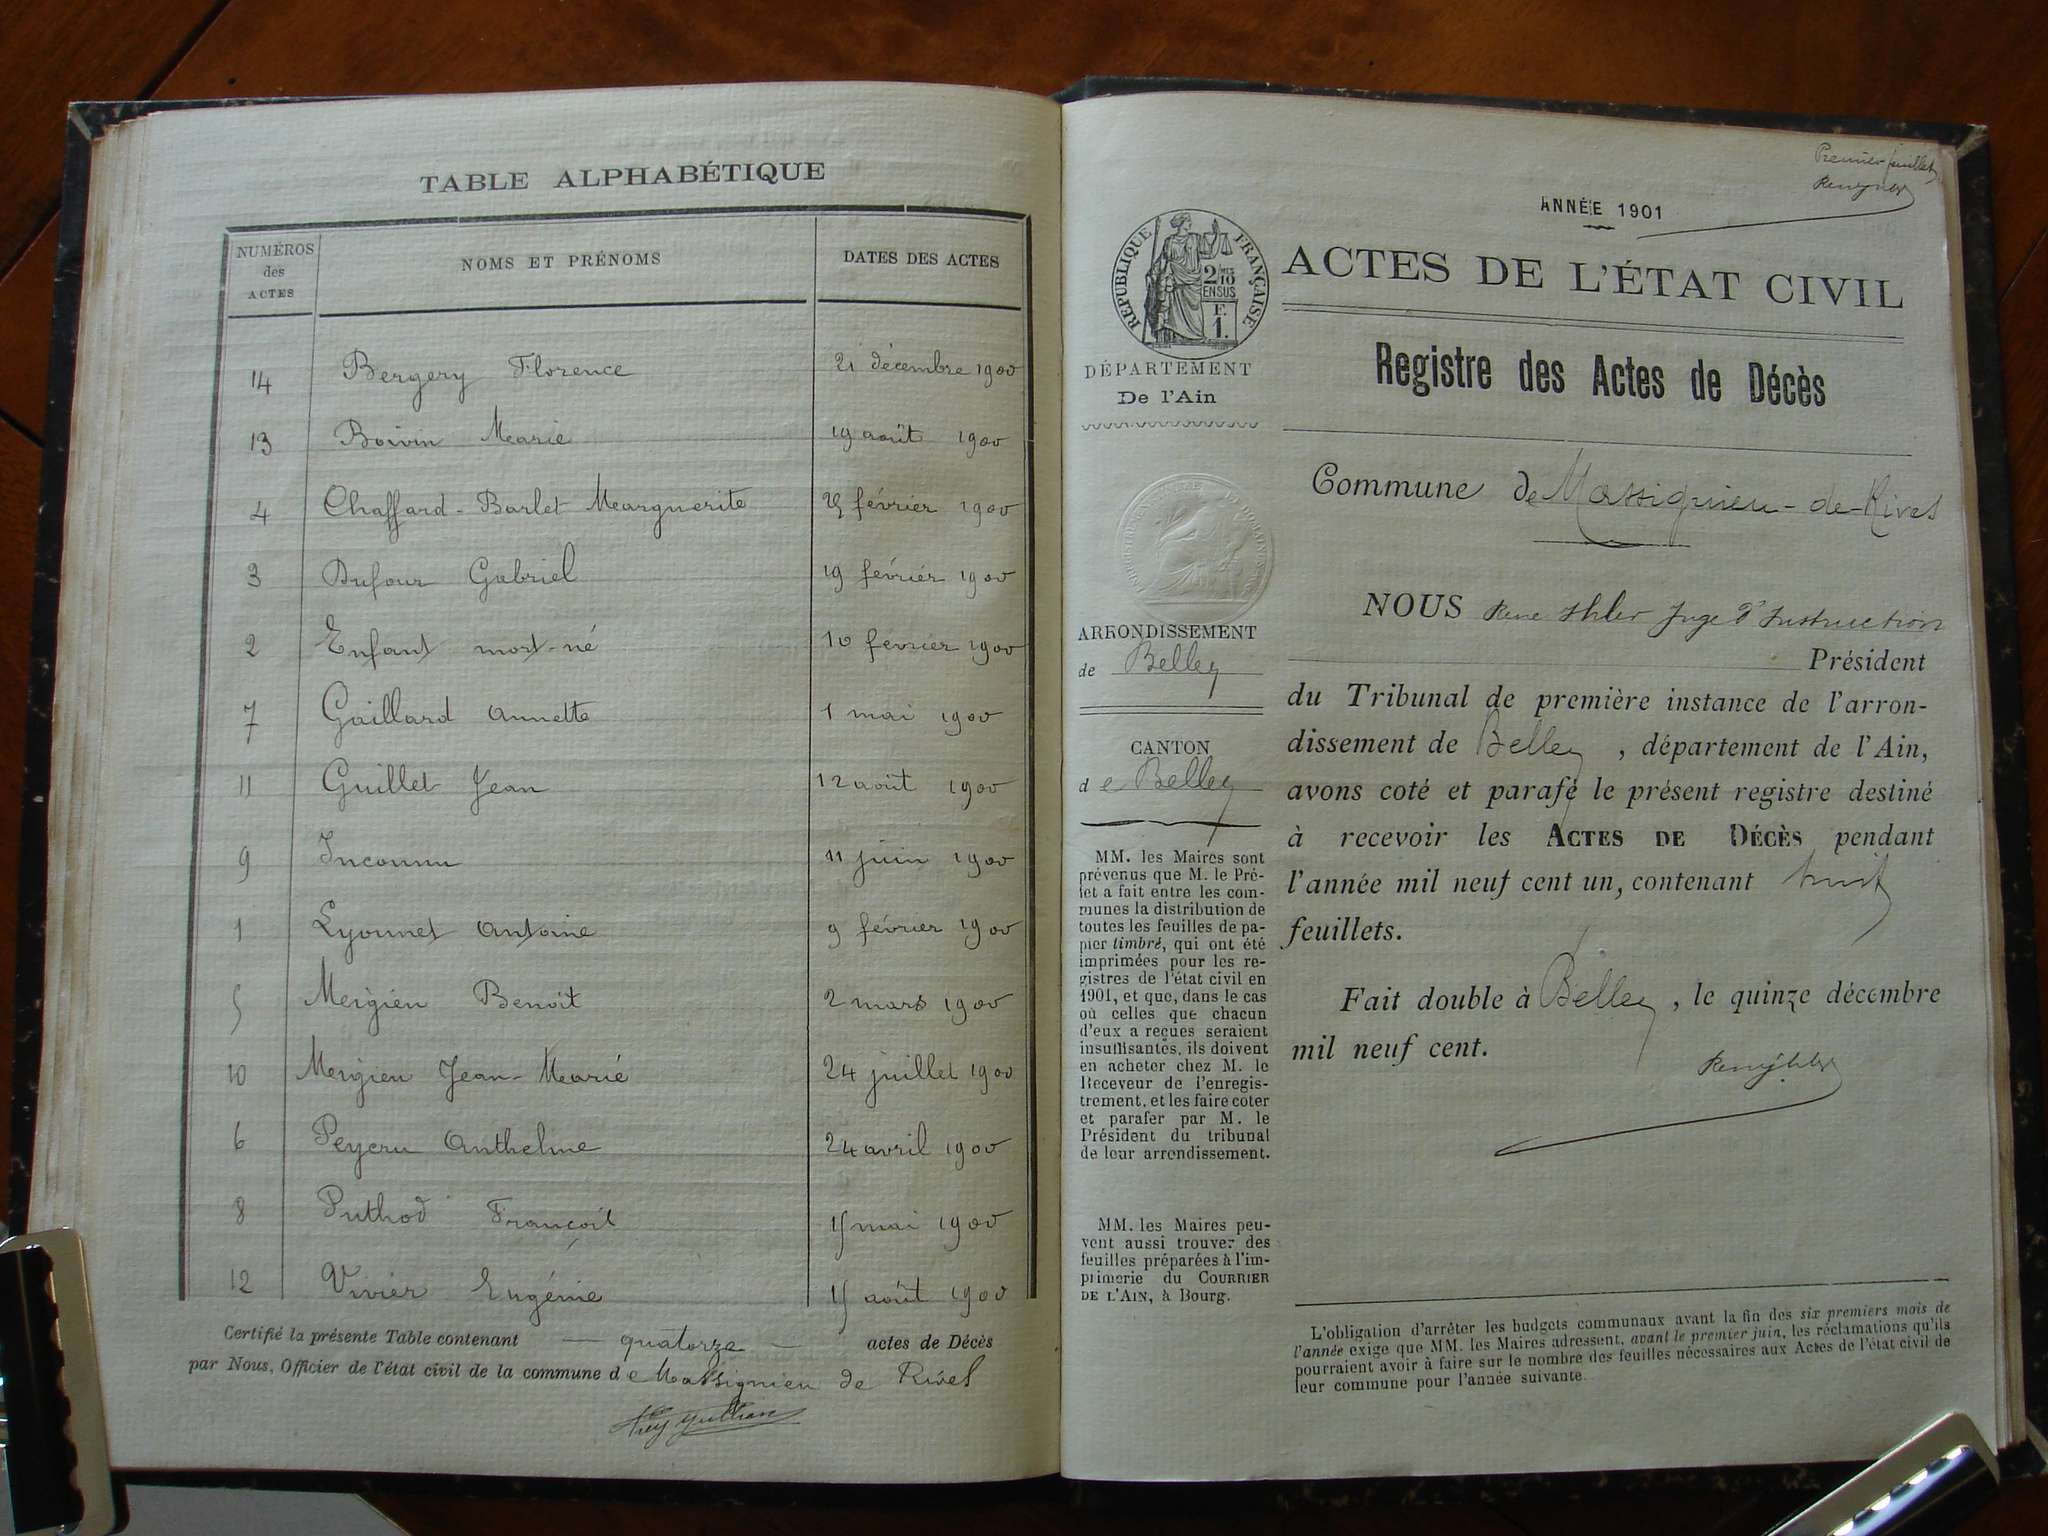 TABLE ALPHABÉTIQUE
NUMÉROS des ACTES
NOMS ET PRÉNOMS
DATES DES ACTES
14 Bergery Florence 21 décembre 1900
13 Boivin Marie 19 août 1900
4 Chaffard-Barlet Marguerite février 1900
3 Dufour Gabriel 19 février 1900
2 Enfant mort-né 10 fevrier 1900
7 Gaillard Annette 1 mai 1900
11 Guillet Jean 12 août 1900
9 Inconnu 11 juin 1900
1 Lyonnet Antoine 9 février 1900
5 Benoît 2 mars 1900
10 Jean-Marie 24 juillet 1900
6 Peycru Anthelme 24 avril 1900
8 Puthod François 15 mai 1900
12 Vivier Eugénie 15 août 1900
Certifié la présente Table contenant — quatorze — actes de Décès
par Nous, Officier de l'état civil de la commune de Massignieu de Rives
Premier feuillet
ANNÉE 1901
RÉPUBLIQUE FRANÇAISE
2/10 EN SUS
F. 1.
ACTES DE L'ÉTAT CIVIL
DÉPARTEMENT
De l'Ain
Registre des Actes de Décès
Commune de Massignieu-de-Rives
ARRONDISSEMENT
de Belley
CANTON
de Belley
MM. les Maires sont
prévenus que M. le Pré-
fet a fait entre les com-
munes la distribution de
toutes les feuilles de pa-
pier timbré, qui ont été
imprimées pour les re-
gistres de l'état civil en
1901, et que, dans le cas
où celles que chacun
d'eux a reçues seraient
insuffisantes, ils doivent
en acheter chez M. le
Receveur de l'enregis-
trement, et les faire coter
et parafer par M. le
Président du tribunal
de leur arrondissement.
MM. les Maires peu-
vent aussi trouver des
feuilles préparées à l'im-
primerie du COURRIER
DE L'AIN, à Bourg.
NOUS René Juge d'Instruction
Président
du Tribunal de première instance de l'arron-
dissement de Belley, département de l'Ain,
avons coté et parafé le présent registre destiné
à recevoir les ACTES DE DÉCÈS pendant
l'année mil neuf cent un, contenant huit
feuillets.
Fait double à Belley, le quinze décembre
mil neuf cent.
L'obligation d'arrêter les budgets communaux avant la fin des six premiers mois de
l'année exige que MM. les Maires adressent, avant le premier juin, les réclamations qu'ils
pourraient avoir à faire sur le nombre des feuilles nécessaires aux Actes de l'état civil de
leur commune pour l'année suivante.